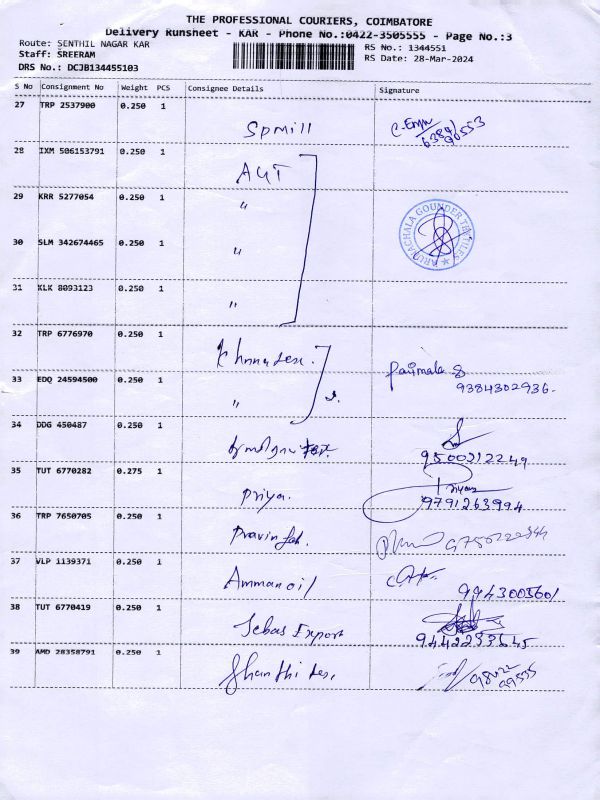 THE PROFESSIONAL COURIERS, COIMBATORE
Delivery Runsheet - KAR - Phone No.:0422-3505555 - Page No.:3
Route: SENTHIL NAGAR KAR
RS No.: 1344551
Staff: SREERAM
RS Date: 28-Mar-2024
DRS No.: DCJB134455103
S No Consignment No Weight PCS Consignee Details Signature
27 TRP 2537900 0.250 1
Spmill
28 IXM 506153791 0.250 1
AGT
29 KRR 5277054 0.250 1
"
ARUNACHALA GOUNDER TEXTILES
30 SLM 342674465 0.250 1
"
31 KLK 8093123 0.250 1
"
32 TRP 6776970 0.250 1
Parimala
9384302936.
33 EDQ 24594500 0.250 1
"
34 DDG 450487 0.250 1
9500212249
35 TUT 6770282 0.275 1
Priya.
Priya
9791263994
36 TRP 7650705 0.250 1
Pravin
37 VLP 1139371 0.250 1
Amman oil
9943003601
38 TUT 6770419 0.250 1
Jebas Export
9442233645
39 AMD 28358791 0.250 1
Shanthi tex.